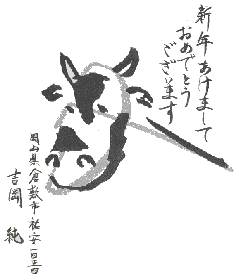 新年あけまして
おめでとう
ございます
岡山県倉敷市祐安
吉岡 純